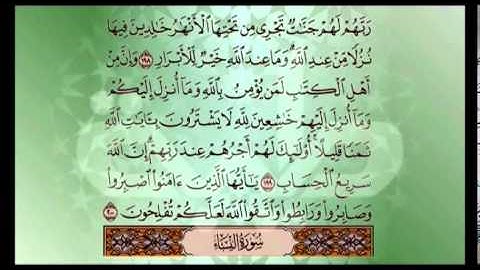 رَبَّهُمْ لَهُمْ جَنَّٰتٌ تَجْرِى مِن تَحْتِهَا ٱلْأَنْهَٰرُ خَٰلِدِينَ فِيهَا
نُزُلًا مِّنْ عِندِ ٱللَّهِ ۗ وَمَا عِندَ ٱللَّهِ خَيْرٌ لِّلْأَبْرَارِ ١٩٨ وَإِنَّ مِنْ
أَهْلِ ٱلْكِتَٰبِ لَمَن يُؤْمِنُ بِٱللَّهِ وَمَآ أُنزِلَ إِلَيْكُمْ
وَمَآ أُنزِلَ إِلَيْهِمْ خَٰشِعِينَ لِلَّهِ لَا يَشْتَرُونَ بِـَٔايَٰتِ ٱللَّهِ
ثَمَنًا قَلِيلًا ۗ أُو۟لَٰٓئِكَ لَهُمْ أَجْرُهُمْ عِندَ رَبِّهِمْ ۗ إِنَّ ٱللَّهَ
سَرِيعُ ٱلْحِسَابِ ١٩٩ يَٰٓأَيُّهَا ٱلَّذِينَ ءَامَنُوا۟ ٱصْبِرُوا۟
وَصَابِرُوا۟ وَرَابِطُوا۟ وَٱتَّقُوا۟ ٱللَّهَ لَعَلَّكُمْ تُفْلِحُونَ ٢٠٠
سُورَةُ النِّسَاءِ